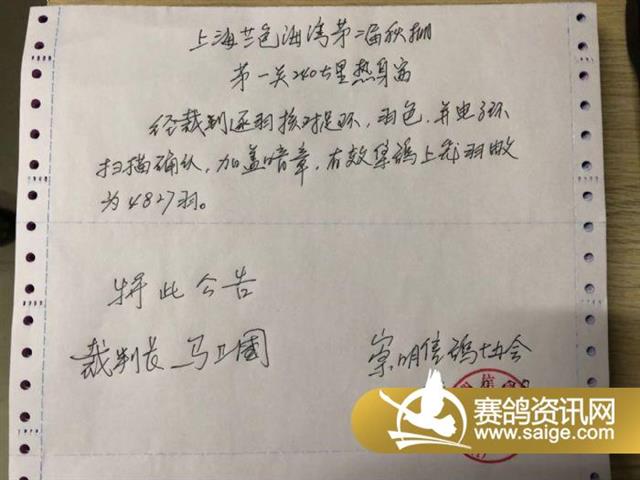 上海兰色海湾第二届秋棚
第一关240公里热身赛
经裁判逐羽核对足环，羽色，并电子环
扫描确认，加盖暗章，有效集鸽上笼羽数
为4827羽。
特此公告
裁判长 马卫国
崇明信鸽协会
赛鸽资讯网
www.saige.com